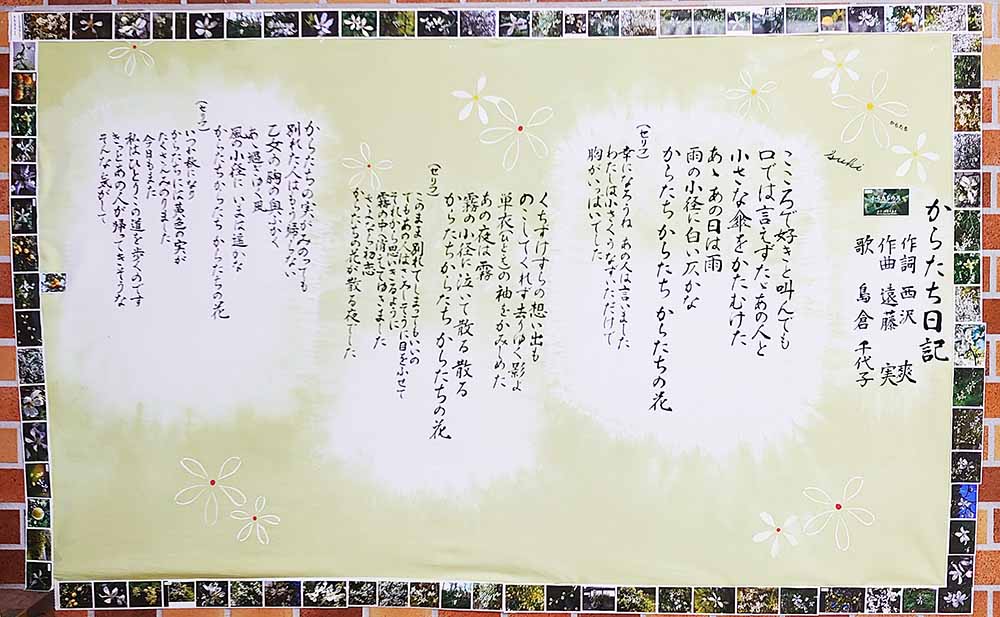 からたち日記
作詞 西沢 爽
作曲 遠藤 実
歌 島倉 千代子
からたち
suki
こころで好きと叫んでも
口では言えずたゞあの人と
小さな傘をかたむけた
あゝあの日は雨
雨の小径に白い仄かな
からたちからたち からたちの花
(セリフ)
幸になろうね あの人は言いました
わたしは小さくうなずいただけで
胸がいっぱいでした
くちずけすらの想い出も
のこしてくれず去りゆく影よ
単衣ひとえの袖をかみしめた
あの夜は霧
霧の小径に泣いて散る散る
からたちからたち からたちの花
(セリフ)
このまま別れてしまってもいいの
でもあの人はさみしそうに目をふせて
それから思いきるように
霧の中へ消えてゆきました
さよなら初恋
からたちの花が散る夜でした
からたちの実がみのっても
別れた人はもう帰らない
乙女の胸の奥ふかく
あゝ過ぎゆく風
風の小径にいまは遥かな
からたちからたち からたちの花
(セリフ)
いつか秋になり
からたちには黄色の実が
たくさんみのりました
今日もまた
私はひとりこの道を歩くのです
きっとあの人が帰ってきそうな
そんな気がして